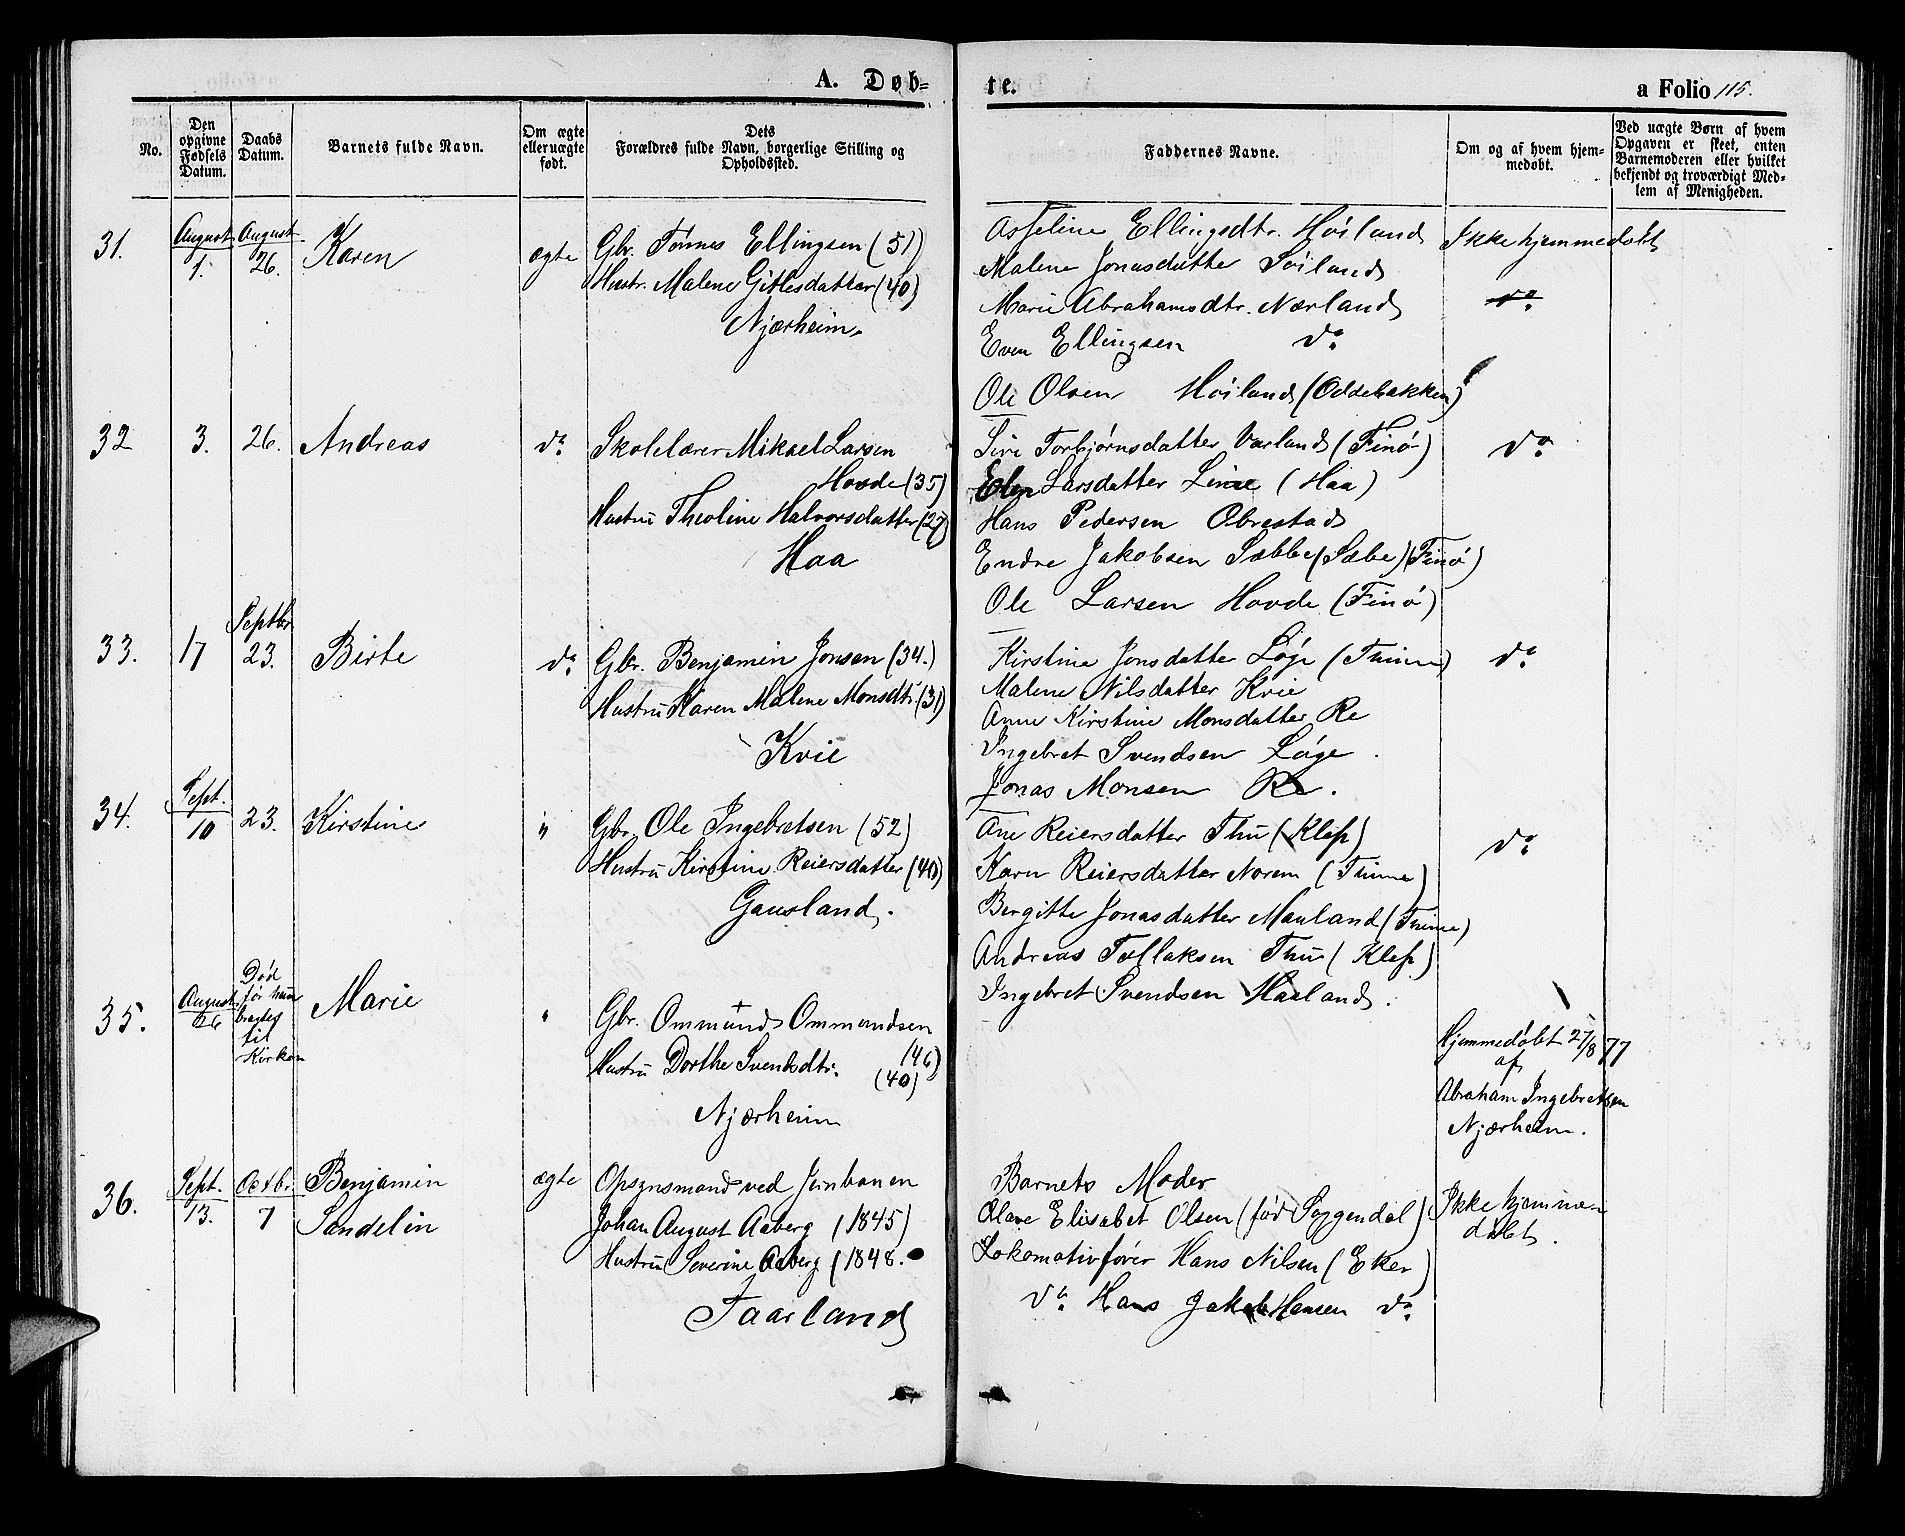 A. Døb-
te.
a Folio 115.
No.
Den opgivne Fødsels Datum.
Daabs Datum.
Barnets fulde Navn.
Om ægte eller uægte født.
Dets Forældres fulde Navn, borgerlige Stilling og Opholdssted.
Faddernes Navne.
Om og af hvem hjemmedøbt.
Ved uægte Børn af hvem Opgaven er skeet, enten Barnemoderen eller hvilket bekjendt og troværdigt Medlem af Menigheden.
31.
August 1.
August 26.
Karen
ægte
Gbr. Tønnes Ellingsen (51)
Hustr. Malene Gitlesdatter (40)
Njærheim.
Asseline Ellingsdtr. Høiland
Malene Jonasdatter Søiland
Marie Abrahamsdtr. Nærland
Even Ellingsen do
Ole Olsen Høiland (Oddebakken)
Ikke hjemmedøbt
do
32
3.
26.
Andreas
do
Skolelærer Mikael Larsen
Hovde (35)
Hustru Theoline Halvorsdatter (27)
Haa
Siri Torbjørnsdatter Varland (Finø)
Elen Larsdatter Linie (Haa)
Hans Pedersen Obrestad
Endre Jakobsen Sæbbe (Sæbe) (Finø)
Ole Larsen Hovde (Finø)
do
33.
17
Septbr 23.
Birte
do
Gbr. Benjamin Jonsen (34.)
Hustru Karen Malene Monsdtr. (31)
Kvie
Kirstine Jonsdatter Løge (Thime)
Malene Nilsdatter Kvie
Anne Kirstine Monsdatter Re
Ingebret Svendsen Løge.
Jonas Monsen Re.
do
34.
Sept. 10
23.
Kirstine
"
Gbr. Ole Ingebretsen (52)
Hustru Kirstine Reiersdatter (40)
Gausland.
Ane Reiersdatter Thu (Klep)
Karn Reiersdatter Norem (Thime)
Bergitte Jonasdatter Mauland (Thime)
Andreas Tollaksen Thu (Klep)
Ingebret Svendsen Haaland.
do
35.
August 26
Død før hun bragtes til Kirken
Marie
"
Gbr. Ommund Ommundsen
(46)
Hustru Dorthe Svendsdtr. (40)
Njærheim
Hjemmedøbt 27/8 77
af
Abraham Ingebretsen
Njærheim.
36.
Sept. 13.
Octbr. 7
Benjamin
Sandelin
ægte
Opsynsmand ved Jernbanen
Johan August Aaberg (1845)
Hustru Severine Aaberg (1848.
Taarland
Barnets Moder
Olave Elisabet Olsen (fød Soggendal)
Lokomotivfører Hans Nilsen (Eker)
do Hans Jakob Hansen do
Ikke hjemme-
døbt.